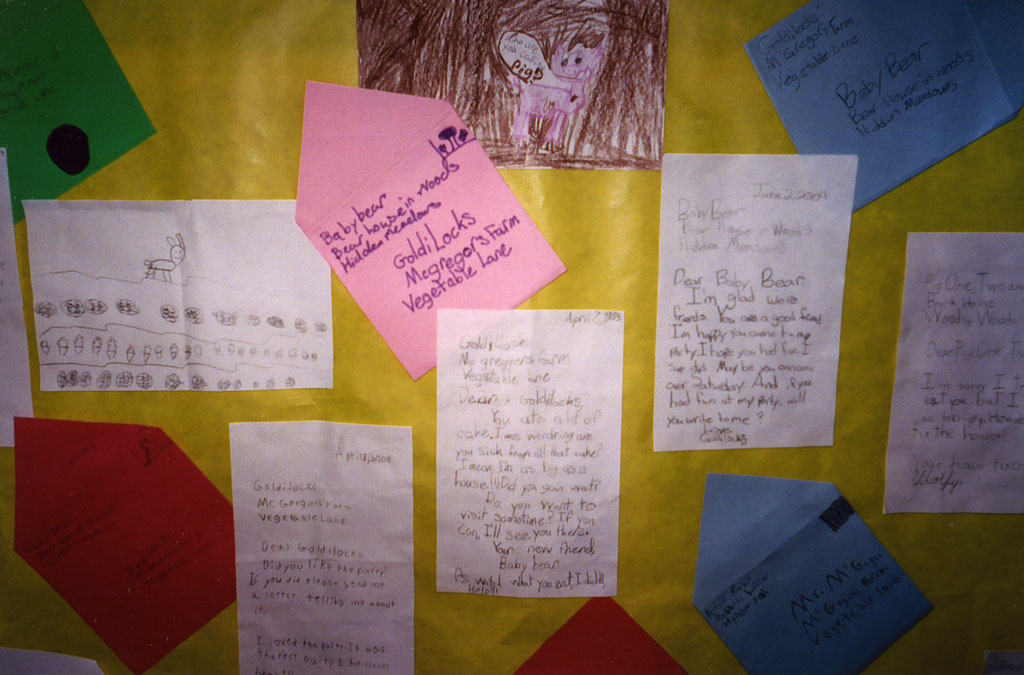 who are
you calling
Pig?
Goldilocks
McGregors Farm
Vegetable Lane
Baby Bear
Bear House in woods
Hidden Meadows
Babybear
Bear house in woods
Hidden Meadows
GoldiLocks
Mcgregors Farm
Vegetable Lane
June 2,
Baby Bear
Bear House in Woods
Hidden Meadows
Dear Baby Bear
I'm glad were
frends. You are a good friend
I'm happy you came to my
party. I hope you had fun. I
sure did. May be you can come
over Saturday. And if you
had fun at my party, will
you write to me?
Love
Goldilocks
Pig One, Two and
Brick House
Woody Woods
Dear Pig One, Tw
I'm sorry I
eat you but I
so hungry.
fix the house
Your house fixer
Wolfy.
April 2,
Goldilocks
Mc greggors Farm
Vegetable lane
Dear Goldilocks
You ate a lot of
cake. I was wondring are
you sick from all that cake?
I mean, I'm as big as a
house!! Did you gain
Do you want to
visit sometime? If you
can, I'll see you there.
Your new friend
Baby bear
Ps. watch what you eat, I didn't,
Help!!!
April
Goldilocks
McGregors Farm
Vegetable Lane
Dear Goldilocks
Did you like the party?
If you did please send me
a letter telling me about
it.
I loved the party. It was
the best party I
Peter Rabit
Mr. McGregor
McGregors Farm
Vegetable lane